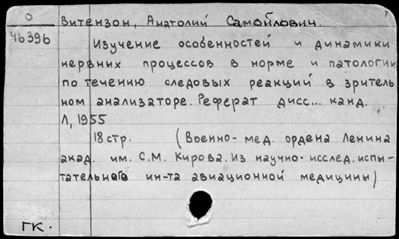 О
46396
Витензон, Анатолий Самойлович.
Изучение особенностей и динамики
нервных процессов в норме и патологии
по течению следовых реакций в зритель
ном анализаторе. Реферат дисс... канд.
Л, 1955
18 стр. (Военно-мед. ордена Ленина
акад. им. С.М. Кирова. Из научно-исслед. испы-
тательного ин-та авиационной медицины)
ГК.